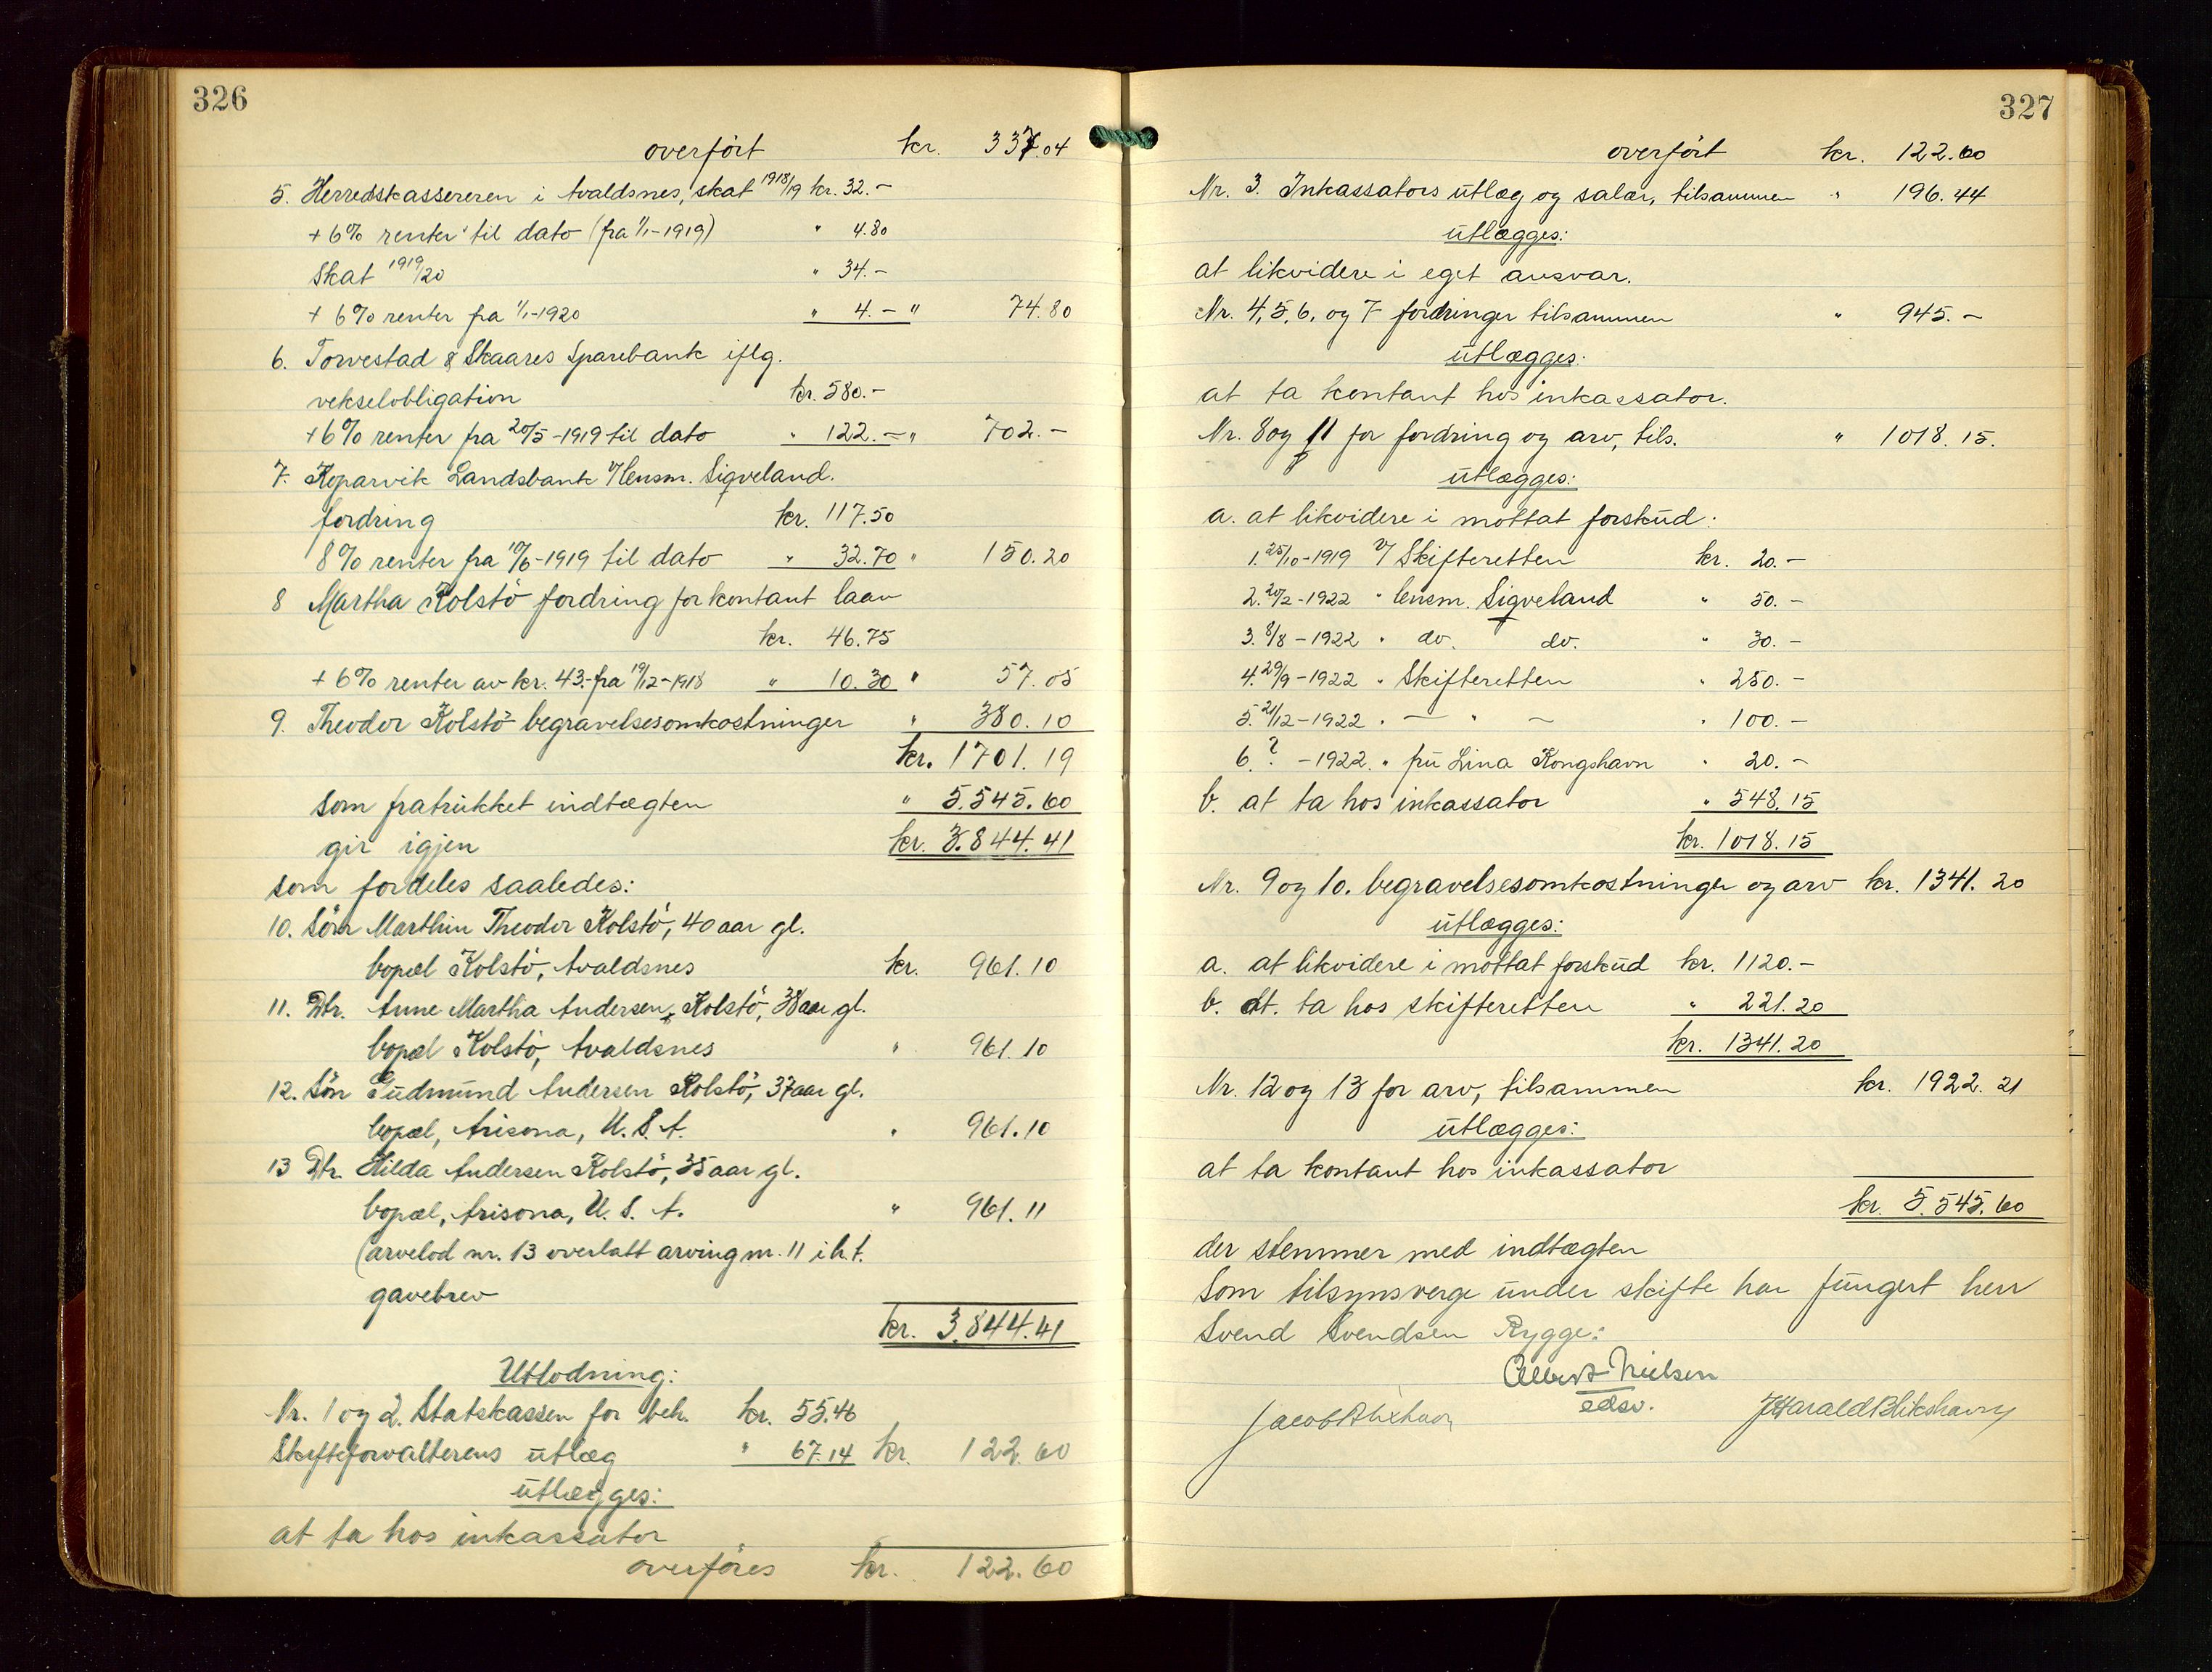 326
overført kr. 337.04
5. Herredskassereren i Avaldsnes, skat 1918/19 kr. 32.-
+ 6% renter til dato (fra 1/1-1919) " 4.80
Skat 1919/20 " 34.-
+ 6% renter fra 1/1-1920 " 4.- " 74.80
6. Torvestad & Skaares Sparebank iflg.
vekselobligation kr. 580.-
+ 6% renter fra 20/5-1919 til dato " 122.- " 702.-
7. Kopervik Landsbank v/ lensm. Sigveland.
fordring kr. 117.50
8% renter fra 10/6-1919 til dato " 32.70 " 150.20
8 Martha Kolstö fordring for kontant laan
kr. 46.75
+ 6% renter av kr. 43.- fra 19/12-1918 " 10.30 " 57.05
9. Theodor Kolstö begravelsesomkostninger " 380.10
kr. 1701.19
som fratrukket indtægten " 5.545.60
gir igjen kr. 3.844.41
som fordeles saaledes:
10. Sön Marthin Theodor Kolstö, 40 aar gl.
bopæl Kolstö, Avaldsnes kr. 961.10
11. Dtr. Anne Martha Andersen Kolstö, 38 aar gl.
bopæl Kolstö, Avaldsnes " 961.10
12. Sön Gudmund Andersen Kolstö, 37 aar gl.
bopæl, Arisona, U.S.A. " 961.10
13 Dtr. Hilda Andersen Kolstö, 35 aar gl.
bopæl, Arisona, U.S.A. " 961.11
(arvelod nr. 13 overlatt arving nr. 11 i h.t.
gavebrev
kr. 3.844.41
Utlodning:
Nr. 1 og 2. Statskassen for beh. kr. 55.46
Skifteforvalterens utlæg " 67.14 kr. 122.60
utlægges:
at ta hos inkassator
overføres kr. 122.60
327
overført kr. 122.60
Nr. 3. Inkassators utlæg og salær, tilsammen " 196.44
utlægges:
at likvidere i eget ansvar.
Nr. 4, 5, 6, og 7 fordringer tilsammen " 945.-
utlægges:
at ta kontant hos inkassator.
Nr. 8 og 11 for fordring og arv, tils. " 1018.15.
utlægges:
a. at likvidere i mottat forskud:
1. 25/10-1919 v/ Skifteretten kr. 20.-
2. 20/2-1922 " lensm. Sigveland " 50.-
3. 8/8-1922 " do. do. " 30.-
4. 29/9-1922 " Skifteretten " 250.-
5. 21/12-1922 " — " — " 100.-
6. ? -1922. " fru Lina Kongshavn " 20.-
b. at ta hos inkassator " 548.15
kr. 1018.15
Nr. 9 og 10. begravelsesomkostninger og arv kr. 1341.20
utlægges:
a. at likvidere i mottat forskud kr. 1120.-
b. at. ta hos skifteretten " 221.20
kr. 1341.20
Nr. 12 og 13 for arv, tilsammen kr. 1922.21
utlægges:
at ta kontant hos inkassator
kr. 5.545.60
der stemmer med indtægten
Som tilsynsverge under skifte har fungert herr
Svend Svendsen Rygge:
Albert Nielsen
edsv.
Jacob Blikshavn
J Harald Blikshavn